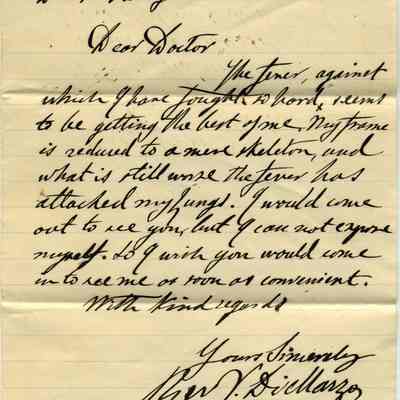 Dear Doctor
The fever, against
which I have fought so hard, seems
to be getting the best of me. My frame
is reduced to a mere skeleton, and
what is still worse the fever has
attacked my lungs. I would come
out to see you, but I can not expose
myself. So I wish you would come
in to see me as soon as convenient.
With kind regards
Yours Sincerely
V. DiMarzo